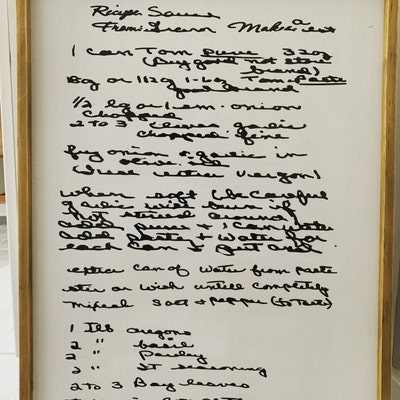 Recipe Sauce
From Makes a
1 can Tom puree 32oz
(Buy good not store
brand)
8oz or 112g 1-6oz Tom Paste
good brand
1/2 lg or 1 em. onion
chopped
2 to 3 cloves garlic
chopped fine
fry onion & garlic in
olive oil
(use extra virgom)
when soft (be careful
garlic will burn if
not stired around)
add puree + 1 can water
add paste + water for
each can &
extra can of water from paste
stir or wish untill completly
mixed salt & pepper (to taste)
1 Tlb oregono
2 " basil
2 " Parsley
2 " IT seasoning
2 to 3 Bay leaves